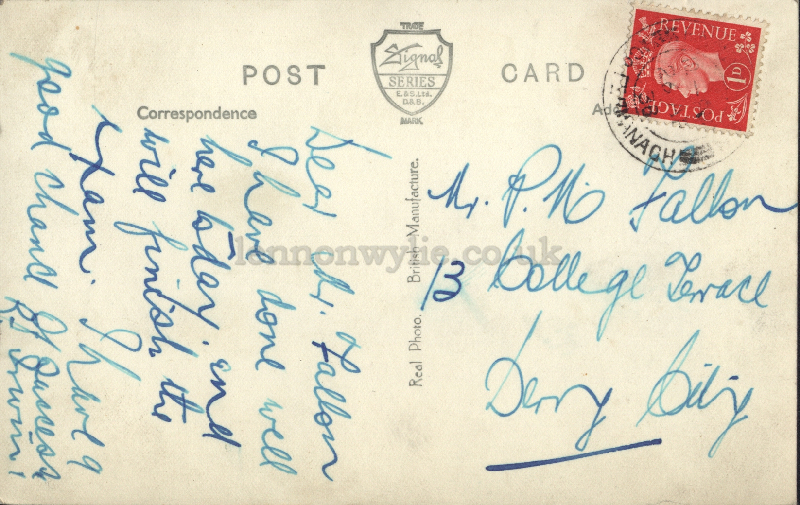 POST CARD
TRADE
Signal
SERIES
E.& S. Ltd.
D. & B.
MARK
Correspondence
Dear Mr. Fallon
I have done well
here today, and
will finish the
Exam. I have a
good chance of success
Irwin
Real Photo. British Manufacture.
REVENUE
1D
POSTAGE
Mr. P. Mc Fallon
13 College Terrace
Derry City
lennonwylie.co.uk